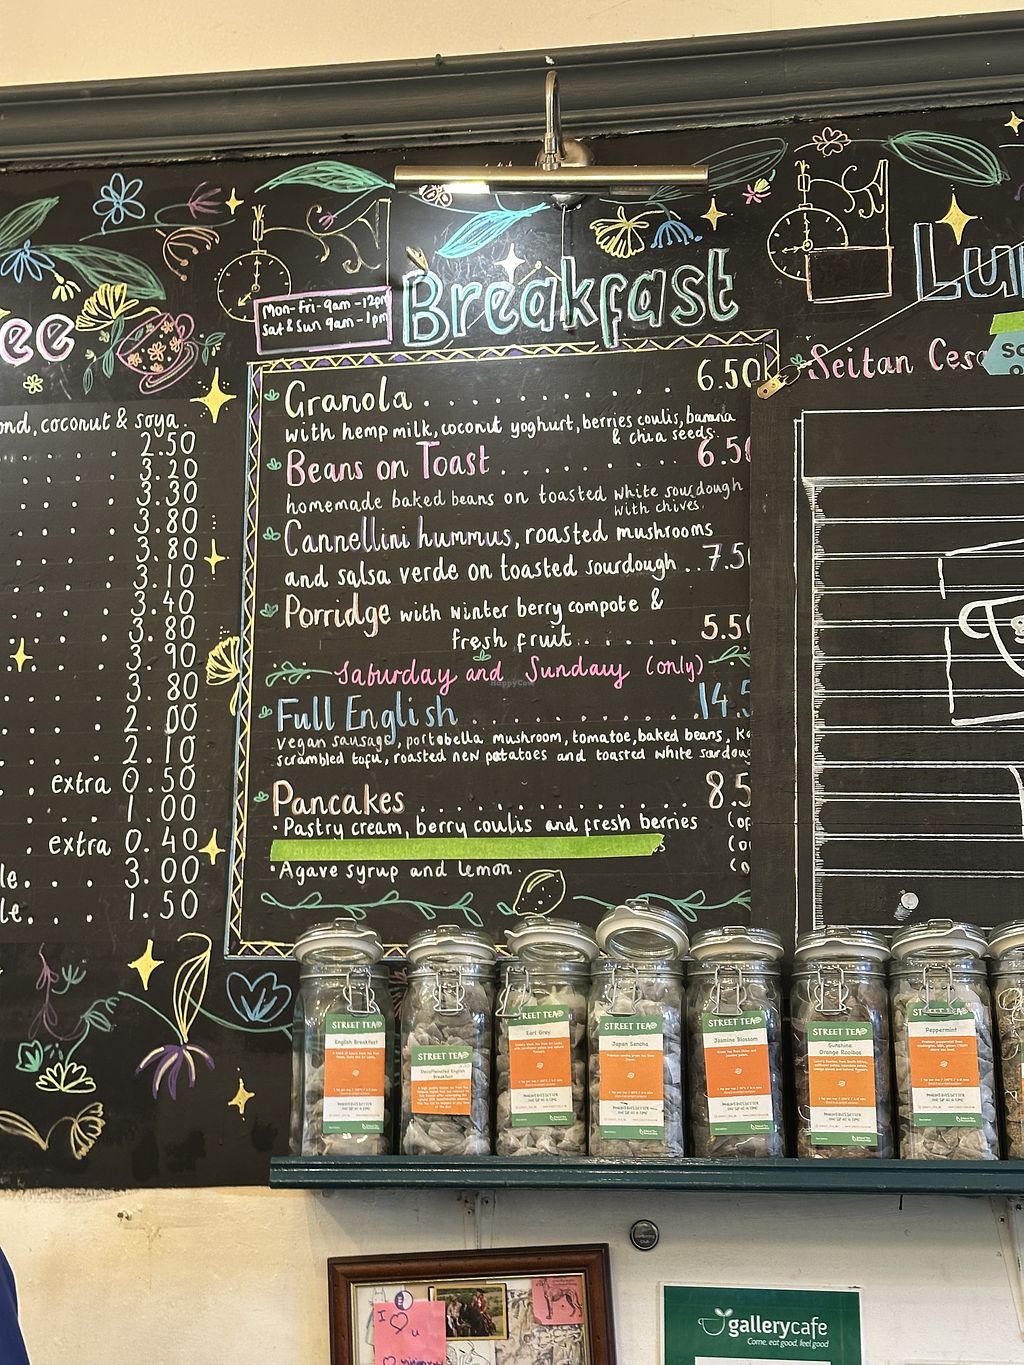 ee
ond, coconut & soya.
2.50
3.20
3.30
3.80
3.80
3.10
3.40
3.80
3.90
3.80
2.00
2.10
extra 0.50
1.00
extra 0.40
le... 3.00
le... 1.50
Mon-Fri-9am-12pm
Sat & Sun 9am-1pm
Breakfast
Granola 6.50
with hemp milk, coconut yoghurt, berries coulis, banana
& chia seeds.
Beans on Toast 6.50
homemade baked beans on toasted white sourdough
with chives.
Cannellini hummus, roasted mushrooms
and salsa verde on toasted sourdough .. 7.50
Porridge with winter berry compote &
fresh fruit 5.50
Saturday and Sunday (only)
HappyCow
Full English 14.5
vegan sausage, portobella mushroom, tomatoe, baked beans,
scrambled tofu, roasted new potatoes and toasted white sourdoug
Pancakes 8.5
• Pastry cream, berry coulis and fresh berries
• Agave syrup and lemon.
Lun
Seitan Cesa
STREET TEA
English Breakfast
STREET TEA
Decaffeinated English
Breakfast
STREET TEA
Earl Grey
STREET TEA
Japan Sencha
STREET TEA
Jasmine Blossom
STREET TEA
Sunshine
Orange Rooibos
STREET TEA
Peppermint
I ♡ u
gallerycafe
Come, eat good, feel good